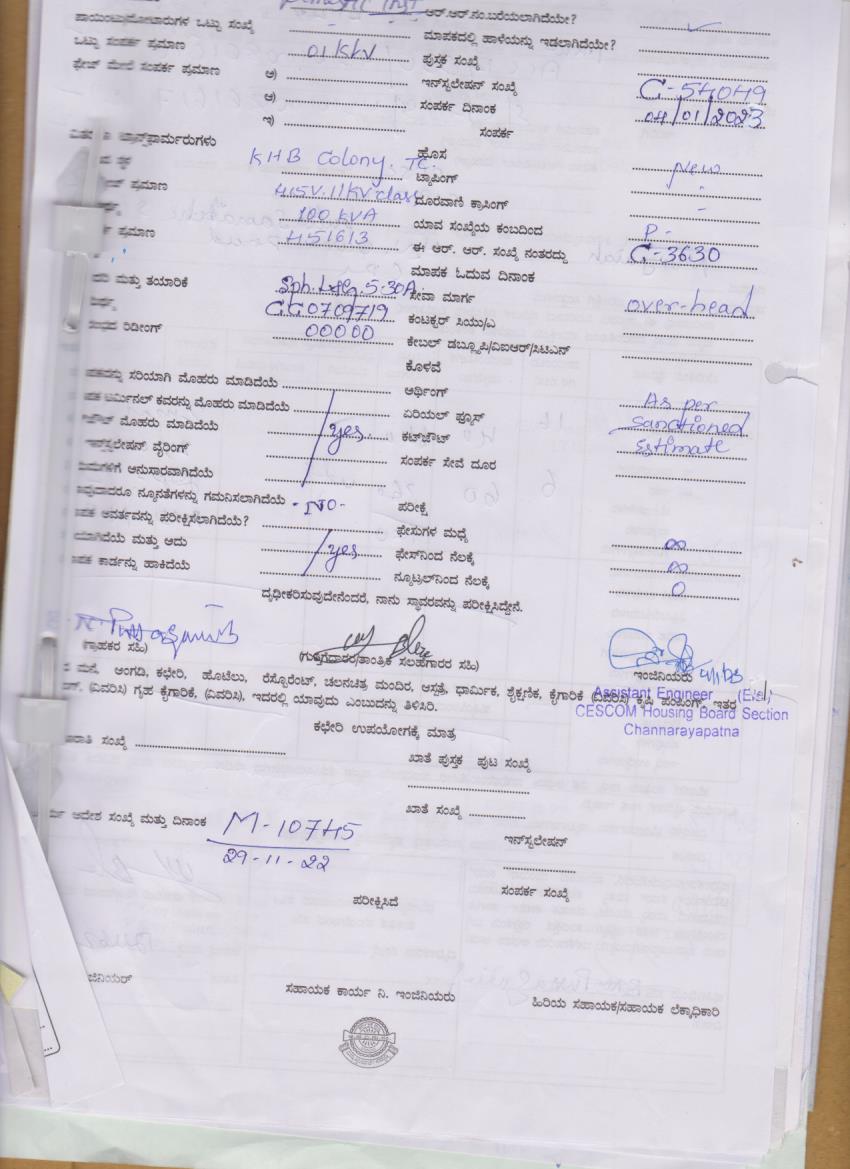 Domestic Inst ಆರ್.ಆರ್.ನಂ.ಬರೆಯಲಾಗಿದೆಯೇ?
ಪಾಯಿಂಟು/ಮೋಟಾರುಗಳ ಒಟ್ಟು ಸಂಖ್ಯೆ ಮಾಪಕದಲ್ಲಿ ಹಾಳೆಯನ್ನು ಇಡಲಾಗಿದೆಯೇ?
ಒಟ್ಟು ಸಂಪರ್ಕ ಪ್ರಮಾಣ 01 KW ಪುಸ್ತಕ ಸಂಖ್ಯೆ
ಫೇಜ್ ಮೇಲೆ ಸಂಪರ್ಕ ಪ್ರಮಾಣ ಅ) ಇನ್‌ಸ್ಟಲೇಷನ್ ಸಂಖ್ಯೆ C-54049
ಆ) ಸಂಪರ್ಕ ದಿನಾಂಕ 04/01/2023
ಇ) ಸಂಪರ್ಕ
ಟ್ರಾನ್ಸ್‌ಫಾರ್ಮರುಗಳು ಹೊಸ New
ಸ್ಥಳ KHB Colony. TC. ಟ್ಯಾಪಿಂಗ್ -
ಪ್ರಮಾಣ 415V. 11KV class ದೂರವಾಣಿ ಕ್ರಾಸಿಂಗ್ -
100 KVA ಯಾವ ಸಂಖ್ಯೆಯ ಕಂಬದಿಂದ P-
ಪ್ರಮಾಣ 451613 ಈ ಆರ್. ಆರ್. ಸಂಖ್ಯೆ ನಂತರದ್ದು C-3630
ಮಾಪಕ ಓದುವ ದಿನಾಂಕ
ಮತ್ತು ತಯಾರಿಕೆ Sph. L&G. 5-30A. ಸೇವಾ ಮಾರ್ಗ over-head
GG0709719 ಕಂಟಕ್ಟರ್ ಸಿಯು/ಎ
ರಿಡೀಂಗ್ 00000 ಕೇಬಲ್ ಡಬ್ಲ್ಯೂಪಿ/ವಿಐಆರ್/ಸಿಟಿಎನ್
ಕೊಳವೆ
ಸರಿಯಾಗಿ ಮೊಹರು ಮಾಡಿದೆಯೆ ಅರ್ಥಿಂಗ್ As per
ಟರ್ಮಿನಲ್ ಕವರನ್ನು ಮೊಹರು ಮಾಡಿದೆಯೆ ಏರಿಯಲ್ ಫ್ಯೂಸ್ sanctioned
ಮೊಹರು ಮಾಡಿದೆಯೆ yes ಕಟ್‌ಔಟ್ Estimate
ಇನ್‌ಸ್ಟಲೇಷನ್ ವೈರಿಂಗ್ ಸಂಪರ್ಕ ಸೇವೆ ದೂರ
ಅನುಸಾರವಾಗಿದೆಯೆ
ನ್ಯೂನತೆಗಳನ್ನು ಗಮನಿಸಲಾಗಿದೆಯೆ - NO - ಪರೀಕ್ಷೆ
ಆವರ್ತವನ್ನು ಪರೀಕ್ಷಿಸಲಾಗಿದೆಯೆ? ಫೇಸುಗಳ ಮಧ್ಯೆ ∞
ಮತ್ತು ಅದು yes ಫೇಸ್‌ನಿಂದ ನೆಲಕ್ಕೆ ∞
ಕಾರ್ಡನ್ನು ಹಾಕಿದೆಯೆ ನ್ಯೂಟ್ರಲ್‌ನಿಂದ ನೆಲಕ್ಕೆ 0
ದೃಢೀಕರಿಸುವುದೇನೆಂದರೆ, ನಾನು ಸ್ಥಾವರವನ್ನು ಪರೀಕ್ಷಿಸಿದ್ದೇನೆ.
(ಗ್ರಾಹಕರ ಸಹಿ) (ಗುತ್ತಿಗೆದಾರರ/ತಾಂತ್ರಿಕ ಸಲಹೆಗಾರರ ಸಹಿ) ಇಂಜಿನಿಯರು
ಮನೆ, ಅಂಗಡಿ, ಕಛೇರಿ, ಹೊಟೆಲು, ರೆಸ್ಟೊರೆಂಟ್, ಚಲನಚಿತ್ರ ಮಂದಿರ, ಆಸ್ಪತ್ರೆ, ಧಾರ್ಮಿಕ, ಶೈಕ್ಷಣಿಕ, ಕೈಗಾರಿಕೆ (ವಿವರಿಸಿ) ಕೃಷಿ ಪಂಪಿಂಗ್, ಇತರ
(ವಿವರಿಸಿ) ಗೃಹ ಕೈಗಾರಿಕೆ, (ವಿವರಿಸಿ), ಇದರಲ್ಲಿ ಯಾವುದು ಎಂಬುದನ್ನು ತಿಳಿಸಿರಿ.
Assistant Engineer (Ele)
CESCOM Housing Board Section
Channarayapatna
ಕಛೇರಿ ಉಪಯೋಗಕ್ಕೆ ಮಾತ್ರ
ಸಂಖ್ಯೆ ಖಾತೆ ಪುಸ್ತಕ ಪುಟ ಸಂಖ್ಯೆ
ಖಾತೆ ಸಂಖ್ಯೆ
ಆದೇಶ ಸಂಖ್ಯೆ ಮತ್ತು ದಿನಾಂಕ M-10745
29-11-22
ಇನ್‌ಸ್ಟಲೇಷನ್
ಸಂಪರ್ಕ ಸಂಖ್ಯೆ
ಪರೀಕ್ಷಿಸಿದೆ
ಸಹಾಯಕ ಕಾರ್ಯ ನಿ. ಇಂಜಿನಿಯರು ಹಿರಿಯ ಸಹಾಯಕ/ಸಹಾಯಕ ಲೆಕ್ಕಾಧಿಕಾರಿ